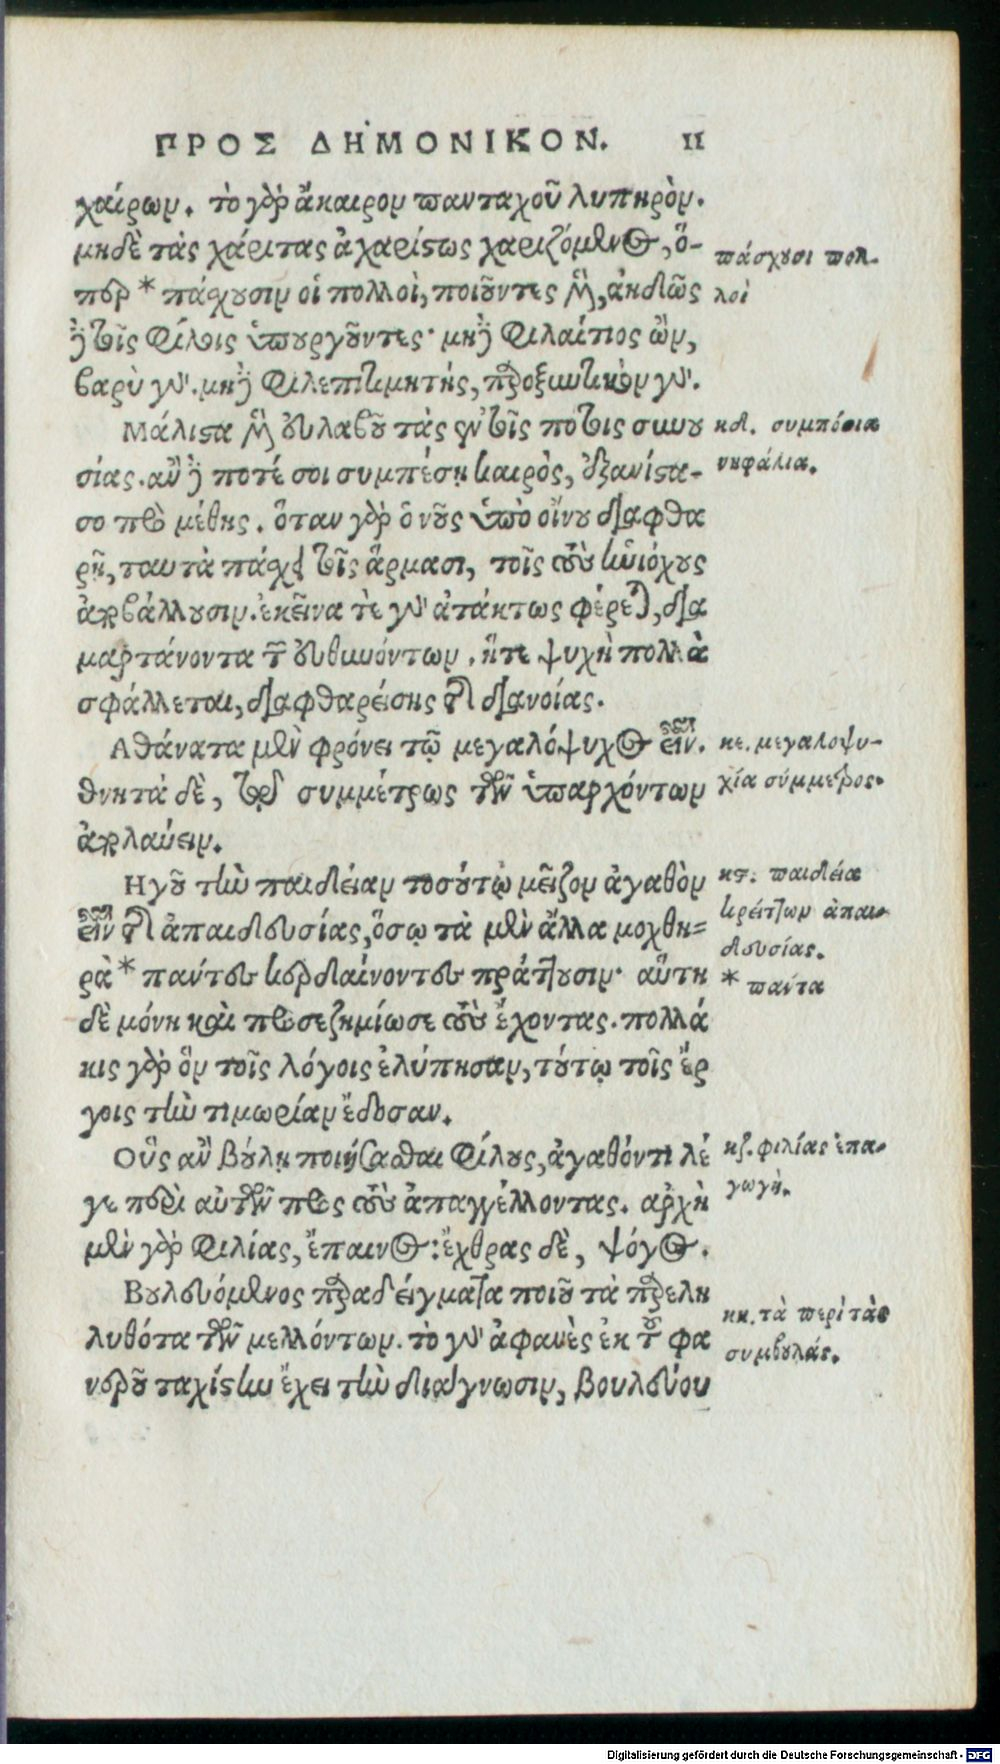 ΠΡΟΣ ΔΗΜΟΝΙΚΟΝ. 11
χαίρων. τὸ γὰρ ἄκαιρον πανταχοῦ λυπηρὸν.
μηδὲ τὰς χάριτας ἀχαρίστως χαριζόμενος, ὅ-
περ * πάσχουσιν οἱ πολλοὶ, ποιοῦντες μὲν, ἀηδῶς
δὲ τοῖς φίλοις ὑπουργοῦντες· μηδὲ φιλαίτιος ὢν,
βαρὺ γάρ. μηδὲ φιλεπιτιμητής, παροξυντικὸν γάρ.
Μάλιστα μὲν εὐλαβοῦ τὰς ἐν τοῖς πότοις συνου
σίας. ἂν δὲ ποτέ σοι συμπέσῃ καιρὸς, ἐξανίστα-
σο πρὸ μέθης. ὅταν γὰρ ὁ νοῦς ὑπὸ οἴνου διαφθα
ρῇ, ταυτὰ πάσχει τοῖς ἅρμασι, τοῖς τοὺς ἡνιόχους
ἀποβάλλουσιν. ἐκεῖνα τὲ γὰρ ἀτάκτως φέρεται, δια
μαρτάνοντα τῶν εὐθυνόντων. ἥτε ψυχὴ πολλὰ
σφάλλεται, διαφθαρείσης τῆς διανοίας.
Αθάνατα μὲν φρόνει τῷ μεγαλόψυχος εἶναι.
θνητὰ δὲ, τῷ συμμέτρως τῶν ὑπαρχόντων
ἀπολαύειν.
Ηγοῦ τὴν παιδείαν τοσούτῳ μεῖζον ἀγαθὸν
εἶναι τῆς ἀπαιδευσίας, ὅσῳ τὰ μὲν ἄλλα μοχθη-
ρὰ * πάντες κερδαίνοντες πράττουσιν· αὕτη
δὲ μόνη καὶ προσεζημίωσε τοὺς ἔχοντας. πολλά
κις γὰρ ὃν τοῖς λόγοις ἐλύπησαν, τούτῳ τοῖς ἔρ
γοις τὴν τιμωρίαν ἔδοσαν.
Οὓς ἂν βούλῃ ποιήσασθαι φίλους, ἀγαθόν τι λέ
γε περὶ αὐτῶν πρὸς τοὺς ἀπαγγέλλοντας. ἀρχὴ
μὲν γὰρ φιλίας, ἔπαινος: ἔχθρας δὲ, ψόγος.
Βουλευόμενος παραδείγματα ποιοῦ τὰ παρελη
λυθότα τῶν μελλόντων. τὸ γὰρ ἀφανὲς ἐκ τοῦ φα
νεροῦ ταχίστην ἔχει τὴν διάγνωσιν, βουλεύου
πάσχουσι πολ-
λοὶ
κδ. συμπόσια
νηφάλια.
κε. μεγαλοψυ-
χία σύμμετρος.
κϛ. παιδεία
κρείττων ἀπαι-
δευσίας.
* πάντα
κζ. φιλίας ἐπα-
γωγή.
κη. τὰ περὶ τὰς
συμβουλάς.
Digitalisierung gefördert durch die Deutsche Forschungsgemeinschaft - DFG